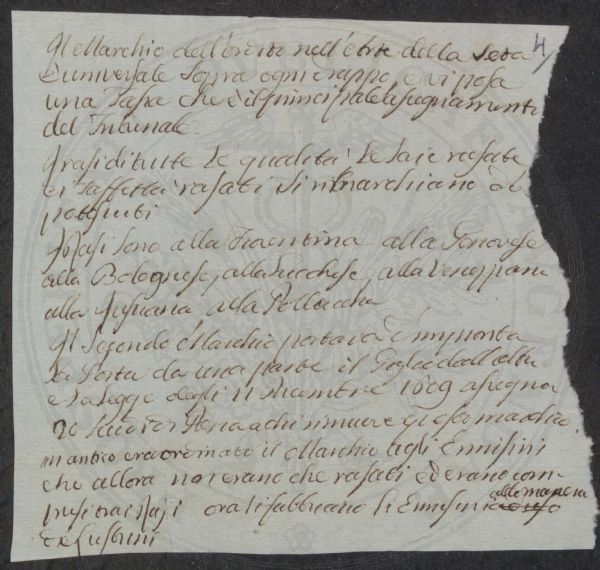 4
Il Marchio dell'ordito nell'Arte della Seta
è universale sopra ogni drappo, e vi posa
una Tassa che è il principale assegnamento
del Tribunale.
I rasi di tutte le qualità le saie rasate
e i Taffettà rasati si rimarchiano do
po tessuti
I Rasi sono alla Fiorentina alla Genovese
alla Bolognese, alla Lucchese, alla Veneziana
alla alla Pollacca
Il Secondo Marchio portava e
la Porta da una parte il Giglio dall'altra
e la Legge degli 11 Dicembre 1609 assegna
20 Scudi di Pena a chi rimuove questo marchio.
in antico era ordinato il Marchio agli Ermisini
che allora non erano che rasati ed erano com-
presi tra i Rasi ora si fabbricano li Ermisini alla maniera
de Lustrini